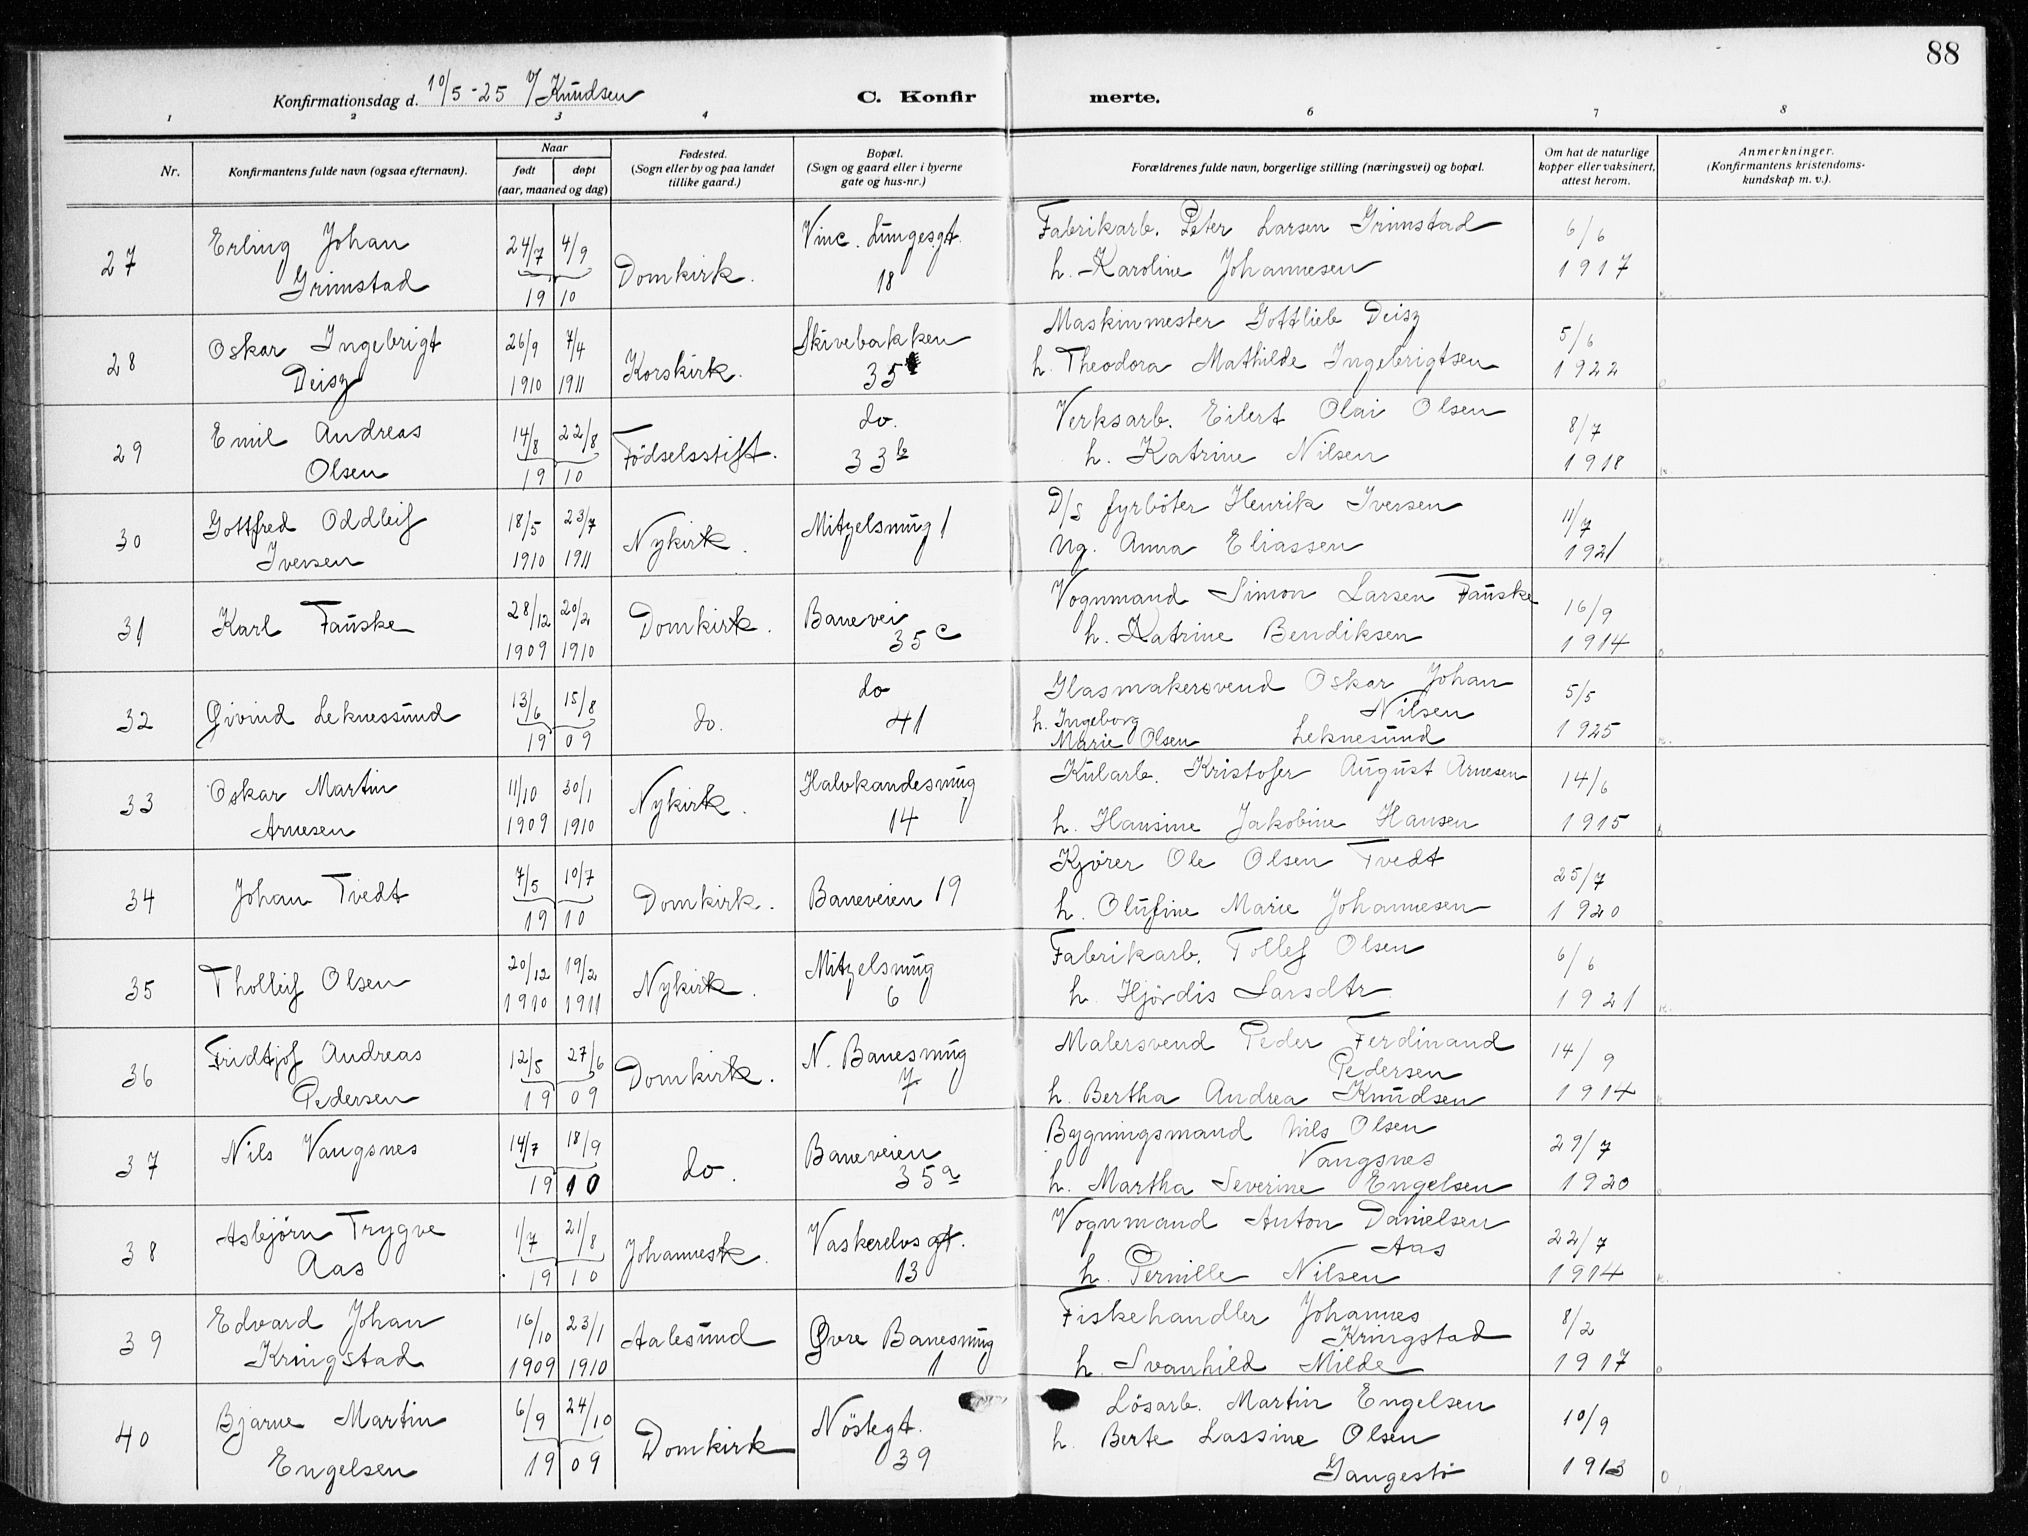 88
Konfirmationsdag d. 10/5-25 v/ Knudsen
C. Konfirmerte.
1 2 3 4 6 7 8
Nr.
Konfirmantens fulde navn (ogsaa efternavn).
Naar
født døpt
(aar, maaned og dag)
Fødested.
(Sogn eller by og paa landet
tillike gaard.)
Bopæl.
(Sogn og gaard eller i byerne
gate og hus-nr.)
Forældrenes fulde navn, borgerlige stilling (næringsvei) og bopæl.
Om hat de naturlige
kopper eller vaksinert,
attest herom.
Anmerkninger.
(Konfirmantens kristendoms-
kundskap m. v.).
27 Erling Johan 24/7 4/9 Domkirk. Vinc. Lungesgt. Fabrikarb. Peter Larsen Grimstad 6/6
Grimstad 19 10 18 h. Karoline Johannesen 1917
28 Oskar Ingebrigt 26/9 7/4 Korskirk. Skivebakken Maskinmester Gottlieb Deisz 5/6
Deisz 1910 1911 35 h. Theodora Mathilde Ingebrigtsen 1922
29 Emil Andreas 14/8 22/8 Fødselsstift. do. Verksarb. Eilert Olai Olsen 8/7
Olsen 19 10 33b h. Katrine Nilsen 1918
30 Gottfred Oddleif 18/5 23/7 Nykirk. Mitzelsmug 1 D/S fyrböter Henrik Iversen 11/7
Iversen 1910 1911 Ug. Anna Eliassen 1921
31 Karl Fauske 28/12 20/2 Domkirk. Banevei Vognmand Simon Larsen Fauske 16/9
1909 1910 35c h. Katrine Bendiksen 1914
32 Øivind Leknessund 13/6 15/8 do. do Glasmakersvend Oskar Johan 5/5
Nilsen
19 09 41 h. Ingeborg
Marie Olsen Leknesund 1925
33 Oskar Martin 11/10 30/1 Nykirk. Halvkandesmug Kularb. Kristofer August Arnesen 14/6
Arnesen 1909 1910 14 h. Hansine Jakobine Hansen 1915
34 Johan Tvedt 7/5 10/7 Domkirk. Baneveien 19 Kjører Ole Olsen Tvedt 25/7
19 10 h. Olufine Marie Johannesen 1920
35 Tholleif Olsen 20/12 19/2 Nykirk. Mitzelsmug Fabrikarb. Tollef Olsen 6/6
1910 1911 6 h. Hjørdis Larsdtr 1921
36 Fridtjof Andreas 12/5 27/6 Domkirk. N. Banesmug Malersvend Peder Ferdinand 14/9
Pedersen
Pedersen 19 09 7 h. Bertha Andrea Knudsen 1914
37 Nils Vangsnes 14/7 18/9 do. Baneveien Bygningsmand Nils Olsen 29/7
Vangsnes
19 10 35a h. Martha Severine Engelsen 1920
38 Asbjørn Trygve 1/7 21/8 Johannesk. Vaskerelvsgt. Vognmand Anton Danielsen 22/7
Aas
Aas 19 10 13 h. Pernille Nilsen 1914
39 Edvard Johan 16/10 23/1 Aalesund Øvre Banesmug Fiskehandler Johannes 8/2
Kringstad
Kringstad 1909 1910 11 h. Svanhild Milde 1917
40 Bjarne Martin 6/9 24/10 Domkirk Nöstegt. Lösarb. Martin Engelsen 10/9
h. Berte Lassine Olsen
Engelsen 19 09 39 Gangestö 1913